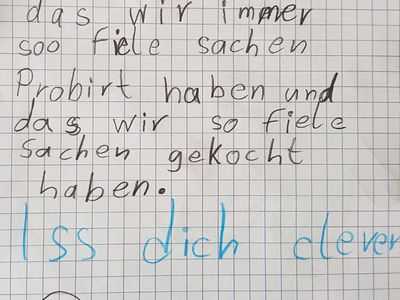 das wir immer
soo fiele sachen
Probirt haben und
das wir so fiele
sachen gekocht
haben.
Iss dich clever